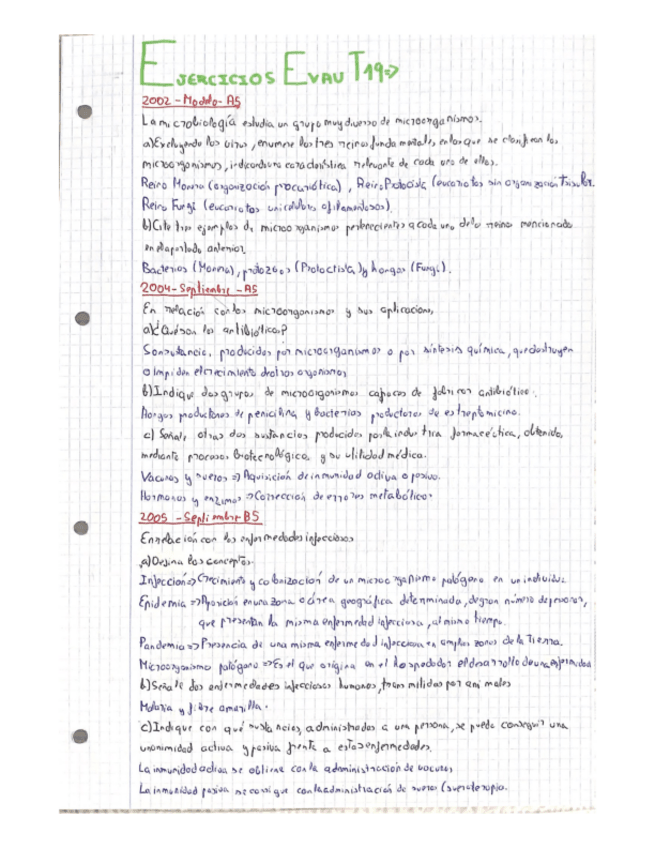 EJERCICIOS EVAU T19=>
2002 - Modelo - A5
La microbiología estudia un grupo muy diverso de microorganismos.
a) Excluyendo los virus, enumere los tres reinos fundamentales, en los que se clasifican los
microorganismos, indicando una característica relevante de cada uno de ellos.
Reino Monera (organización procariótica), Reino Protoctista (eucariotas sin organización
Reino Fungi (eucariotas unicelulares o filamentosos).
b) Cite tres ejemplos de microorganismos pertenecientes a cada uno de los reinos mencionado
en el apartado anterior.
Bacterias (Monera), protozoos (Protoctista) y hongos (Fungi).
2004 - Septiembre - A5
En relación con los microorganismos y sus aplicaciones,
a) ¿Qué son los antibióticos?
Son sustancias, producidas por microorganismos o por síntesis química, que destruyen
o impiden el crecimiento de otros organismos
b) Indique dos grupos de microorganismos capaces de fabricar antibióticos.
Hongos productores de penicilina y bacterias productoras de estreptomicina.
c) Señale otras dos sustancias producidas por la industria farmacéutica, obtenidas
mediante procesos biotecnológicos, y su utilidad médica.
Vacunas y sueros => Aquisición de inmunidad activa o pasiva.
Hormonas y enzimas => Corrección de errores metabólicos
2005 - Septiembre B5
En relación con las enfermedades infecciosas
a) Defina los conceptos.
Infección => Crecimiento y colonización de un microorganismo patógeno en un individuo.
Epidemia => Aparición en una zona o área geográfica determinada, de gran número de personas,
que presentan la misma enfermedad infecciosa, al mismo tiempo.
Pandemia => Presencia de una misma enfermedad infecciosa en amplias zonas de la Tierra.
Microorganismo patógeno => Es el que origina en el hospedador el desarrollo de una enfermedad
b) Señale dos enfermedades infecciosas humanas, transmitidas por animales
Malaria y fiebre amarilla.
c) Indique con qué sustancias, administradas a una persona, se puede conseguir una
inmunidad activa y pasiva frente a estas enfermedades.
La inmunidad activa se obtiene con la administración de vacunas
La inmunidad pasiva se consigue con la administración de sueros (sueroterapia.